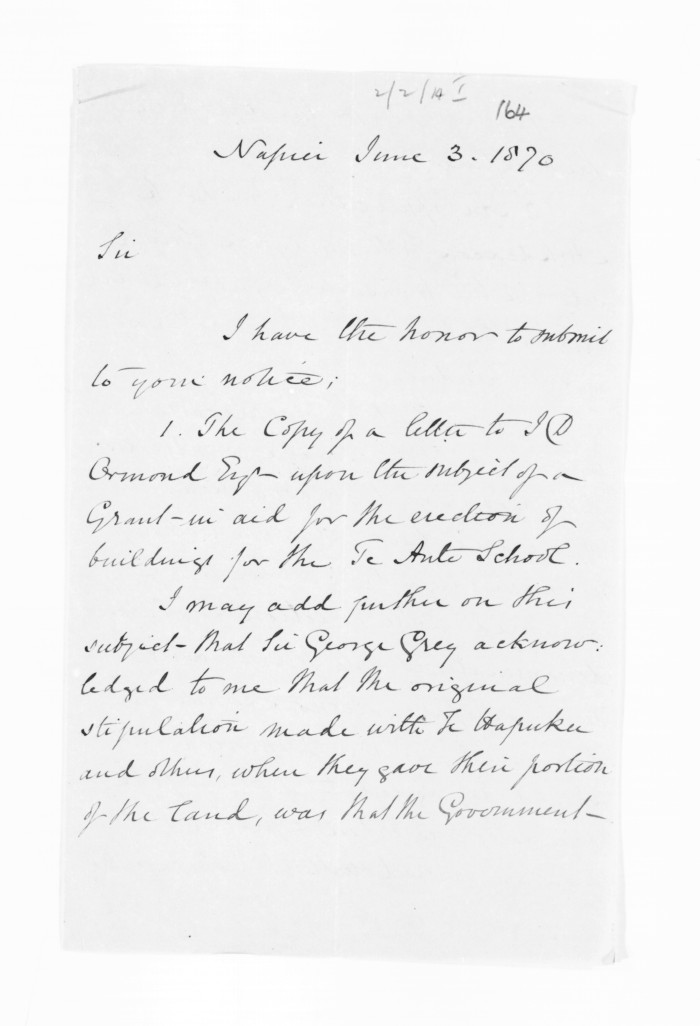 2/2/14 I
164
Napier June 3. 1870
Sir
I have the honor to submit
to your notice;
1. The Copy of a letter to J D
Ormond Esq - upon the subject of a
Grant-in aid for the erection of
buildings for the Te Aute School.
I may add further on this
subject - that Sir George Grey acknow:
ledged to me that the original
stipulation made with Te Hapuku
and others, when they gave their portion
of the land, was that the Government -